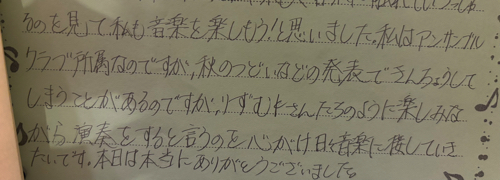 るのを見て、私も音楽を楽しもう!と思いました。私はアンサンブル
クラブ所属なのですが、秋のつどいなどの発表できんちょうして
しまうことがあるのですが、りずむ
のように楽しみな
がら演奏をすると言うのを心がけ日々音楽に接していき
たいです。本日は本当にありがとうございました。